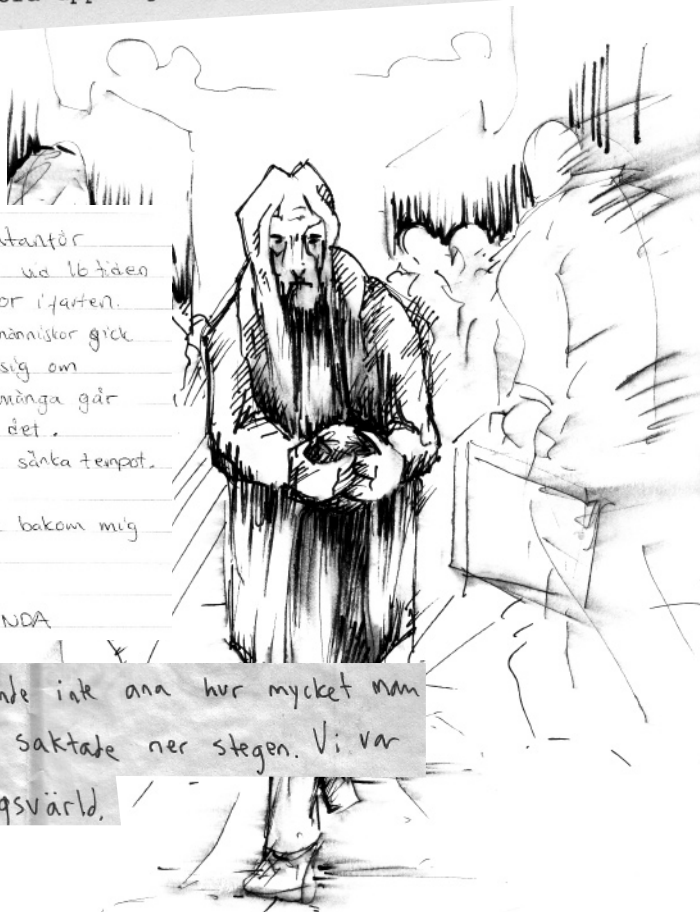 utanför
vid 16 tiden
or i farten.
människor gick
sig om
många går
det.
sänka tempot.
bakom mig
NDA
nde inte ana hur mycket man
saktade ner stegen. Vi var
gsvärld.